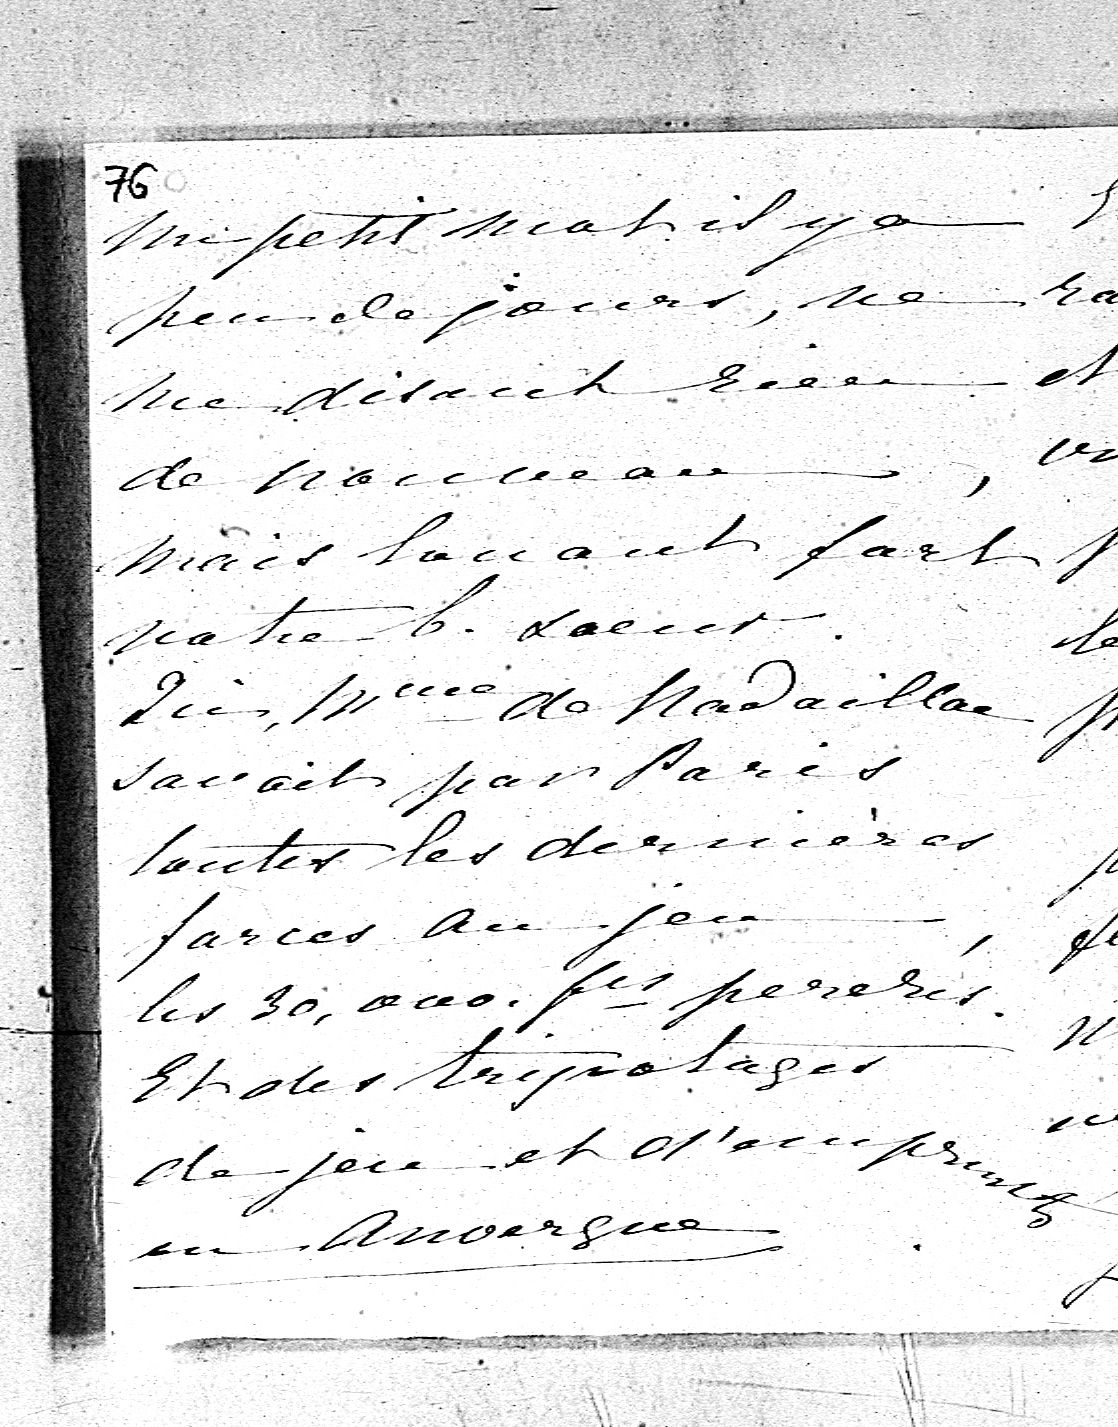 76
un petit mot il y a
peu de jours, ne
me disant rien
de nouveau,
mais louant fort
notre b. soeur.
Ici, Mme de Nadaillac
savait par Paris
toutes les dernières
farces au jeu,
les 30,000. frs perdus.
Et des tripotages
de jeu et d'emprunts
en Auvergne.